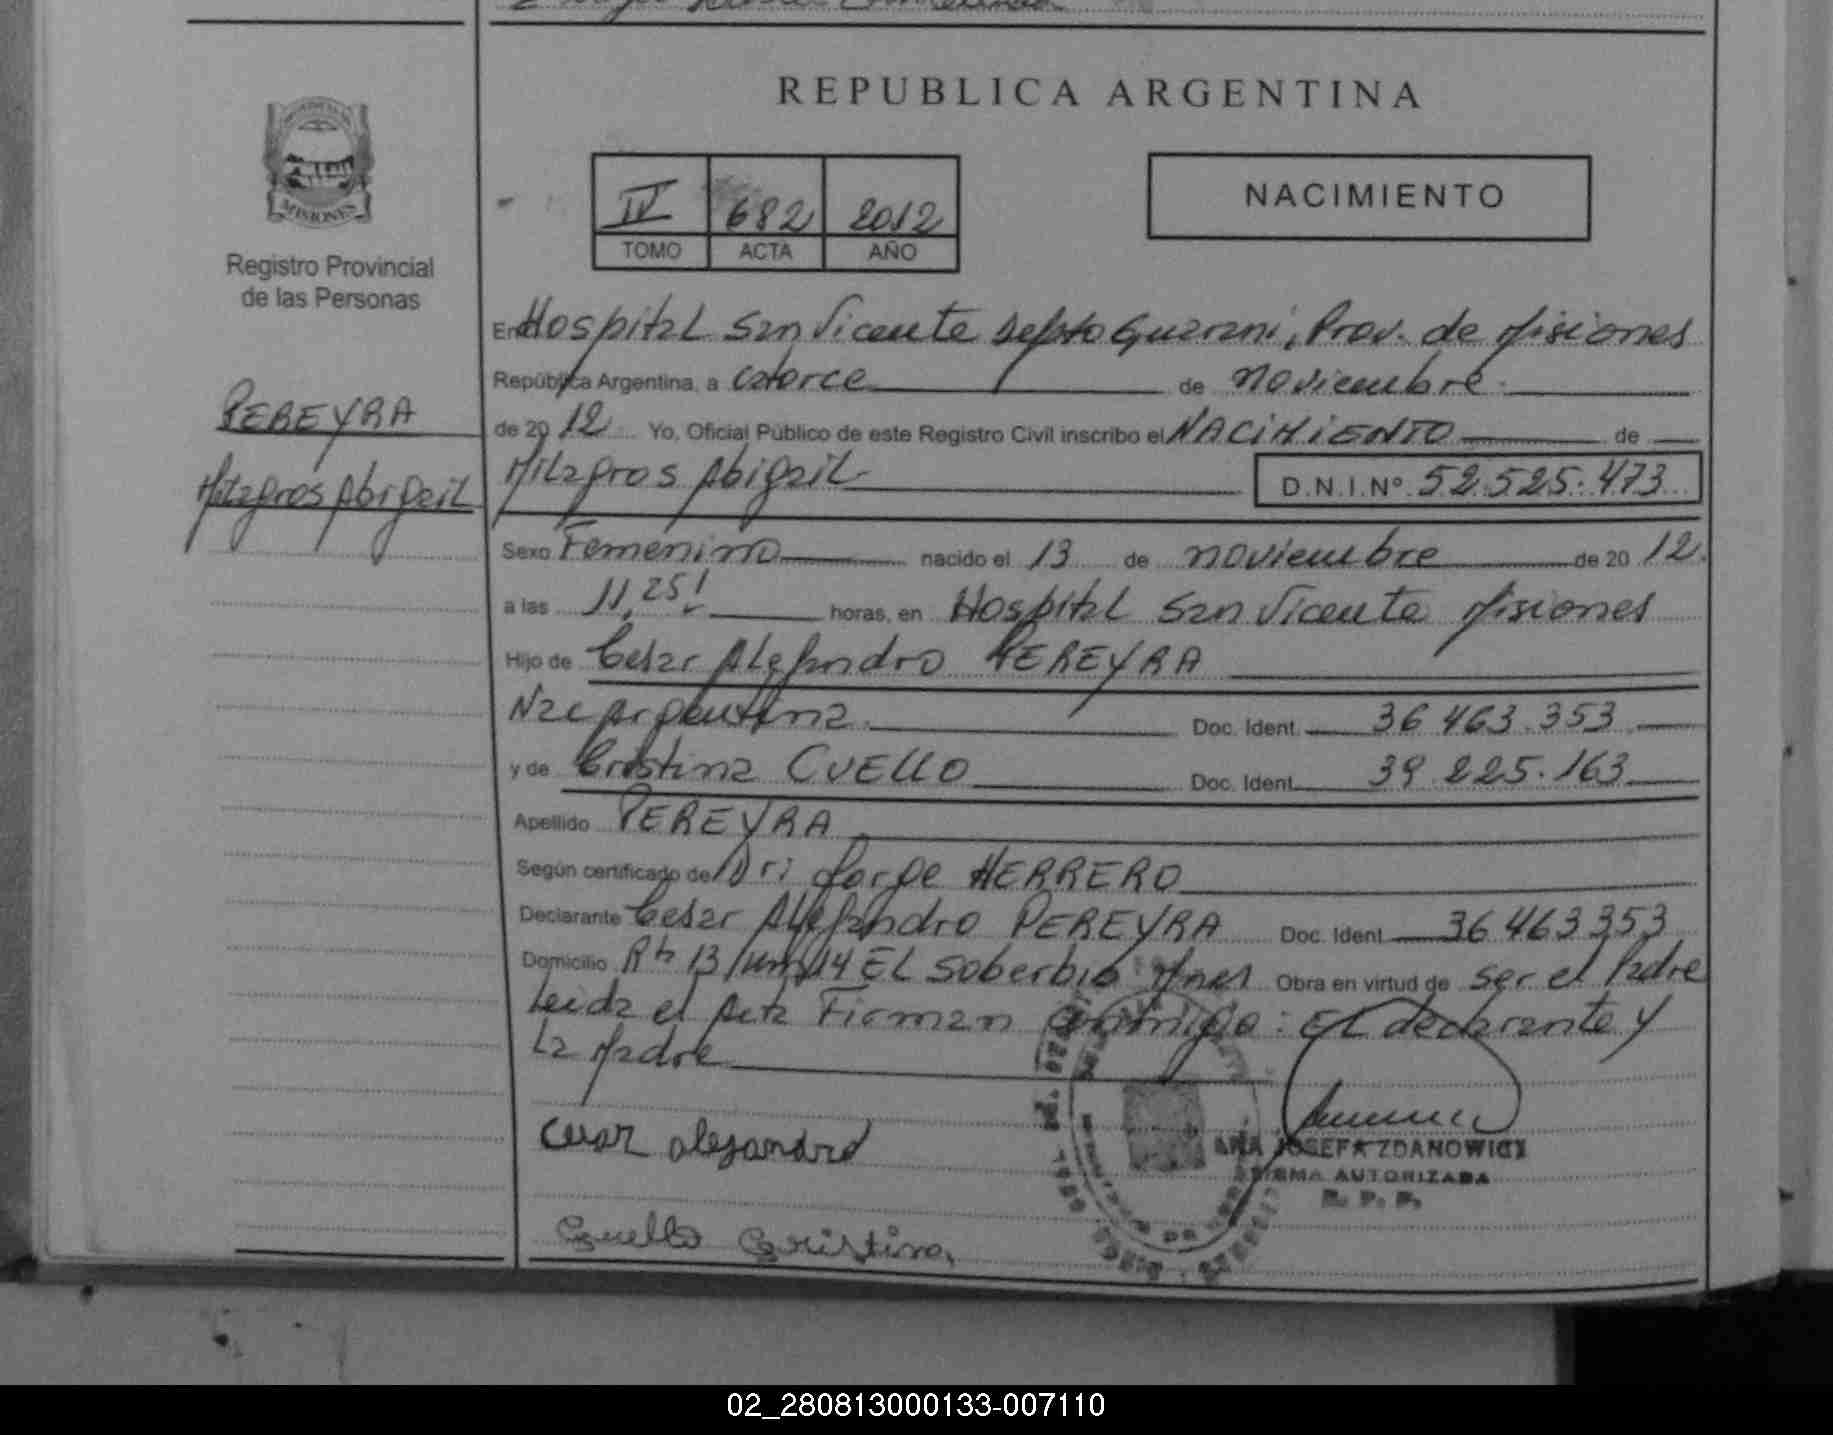 REPUBLICA ARGENTINA
MISIONES
Registro Provincial
de las Personas
IV 682 2012
TOMO ACTA AÑO
NACIMIENTO
PEREYRA
Milagros Abigail
En Hospital San Vicente Depto Guarani, Prov. de Misiones
República Argentina, a catorce de noviembre
de 2012 Yo, Oficial Público de este Registro Civil inscribo el NACIMIENTO de
Milagros Abigail D.N.I.Nº 52.525.473
Sexo Femenino nacido el 13 de noviembre de 2012.
a las 11,25 horas, en Hospital San Vicente Misiones
Hijo de Cesar Alejandro PEREYRA
Nac Argentina Doc. Ident. 36 463.353
y de Cristina CUELLO Doc. Ident. 39 225.163
Apellido PEREYRA
Según certificado de Dr: Jorge HERRERO
Declarante Cesar Alejandro PEREYRA Doc. Ident 36 463 353
Domicilio Rta 13 km 14 EL Soberbio Mnes Obra en virtud de ser el Padre
Leida el Acta Firman conmigo: EL declarante y
La Madre
Cesar alejandro
ANA JOSEFA ZDANOWICZ
FIRMA AUTORIZADA
R. P. P.
Cuello Cristina
02_280813000133-007110